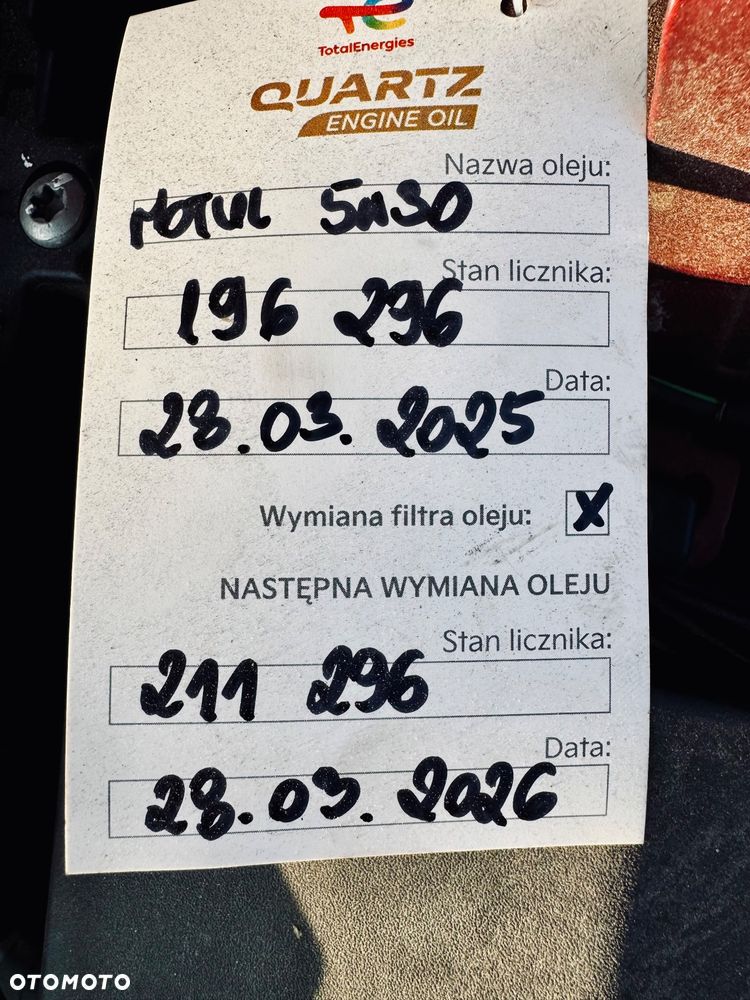 TotalEnergies
QUARTZ
ENGINE OIL
Nazwa oleju:
MOTUL 5W30
Stan licznika:
196 296
Data:
28.03.2025
Wymiana filtra oleju: X
NASTĘPNA WYMIANA OLEJU
Stan licznika:
211 296
Data:
28.03.2026
OTOMOTO